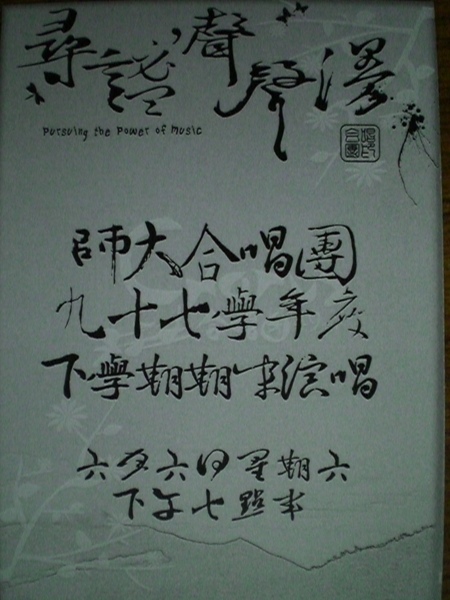 尋謐聲聲漫
Pursuing the Power of Music
師大合唱團
九十七學年度
下學期期末演唱
六月六日星期六
下午七點半